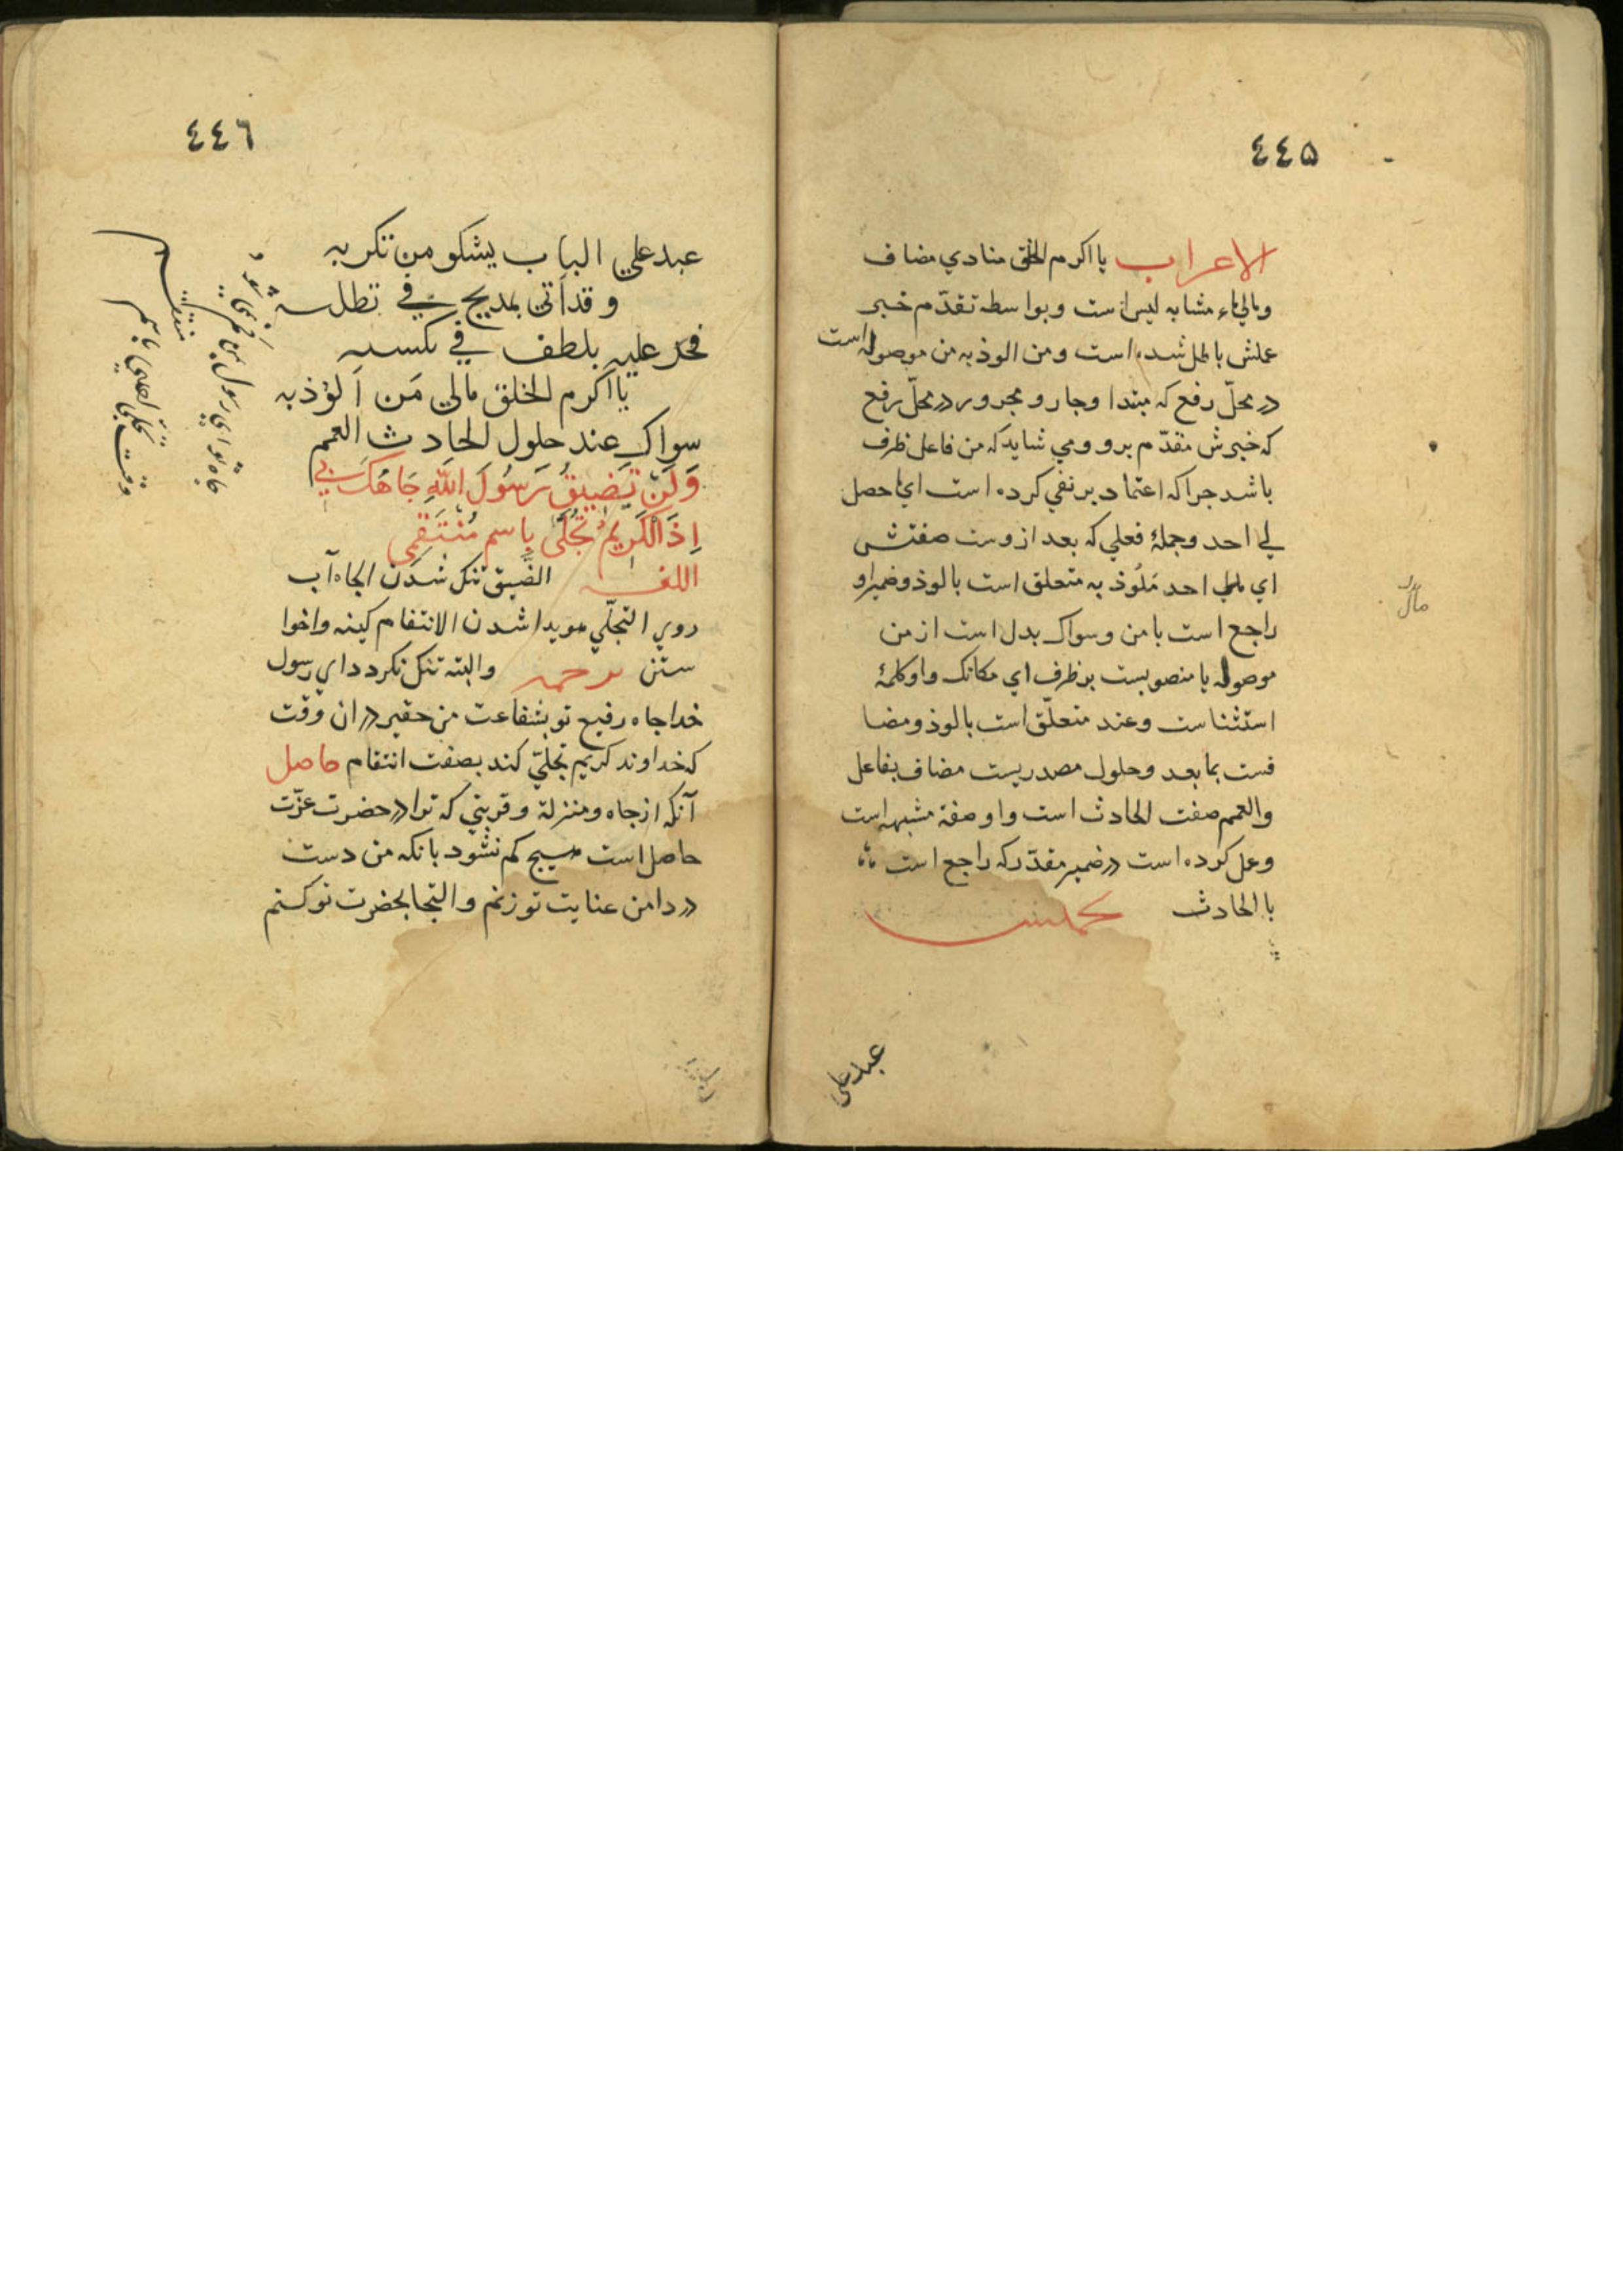 ٤٤۵
الاعراب یا اکرم الخلق منادي مضاف
ومالي ماء مشابه لیس است وبواسطه تقدّم خبر
عملش باطل شده است ومن الوذ به من موصوله است
در محلّ رفع که مبتدا وجار و مجرور در محلّ رفع
که خبرش مقدّم برو ومي شاید که من فاعل ظرف
باشد جرا که اعتماد بر نفي کرده است اي ما حصل
لي احد وجملهٔ فعلي که بعد ازوست صفتش
اي مالي احد مَلُوذ به متعلق است بالوذ وضمیر او
راجع است با من وسواک بدل است از من
موصوله یا منصوبست بر ظرف اي مکانک واو کلمهٔ
استثناست وعند متعلّق است بالوذ ومضا
فست بما بعد وحلول مصدریست مضاف بفاعل
والعمم صفت الحادث است واو صفة مشبهه است
وعمل کرده است در ضمیر مقدّر که راجع است
با الحادث
مال
عبد علي
٤٤٦
عبد علي الباب یشکو من تکربه
وقد أتی بمدیح في تطلبه
فجد علیه بلطف في
یا اکرم الخلق مالي مَن اَلوُذ به
سواک عند حلول الحادث العمم
وَلَنْ یَضِیقَ رَسُولَ اللّٰهِ جَاهُکَ بي
اِذَا الْکَرِیمُ تَجَلَّی بِاسمِ مُنْتَقِمِ
اللغه الضّیق تنک شدن الجاه آب
روي التجلّي هویدا شدن الانتقام کینه واخوا
ستن ترجمه والبته تنک نکردد اي رسول
خدا جاه رفیع تو بشفاعت من حقیر در ان وقت
که خداوند کریم تجلّي کند بصفت انتقام حاصل
آنکه از جاه ومنزلة وقربتي که ترا در حضرت عزّت
حاصل است هیچ کم نشود بانکه من دست
در دامن عنایت تو زنم والتجا بحضرت تو کنم
جاه تو اي رسول
وقت تجلّي الهي باسم
منتقم